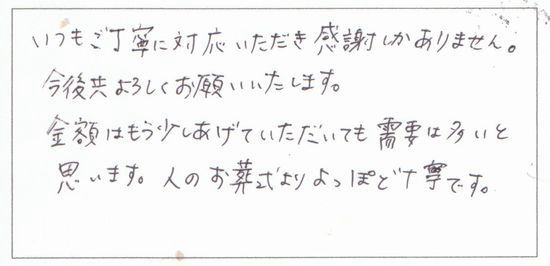 いつもご丁寧に対応いただき感謝しかありません。
今後共よろしくお願いいたします。
金額はもう少しあげていただいても需要は多いと
思います。人のお葬式よりよっぽど丁寧です。